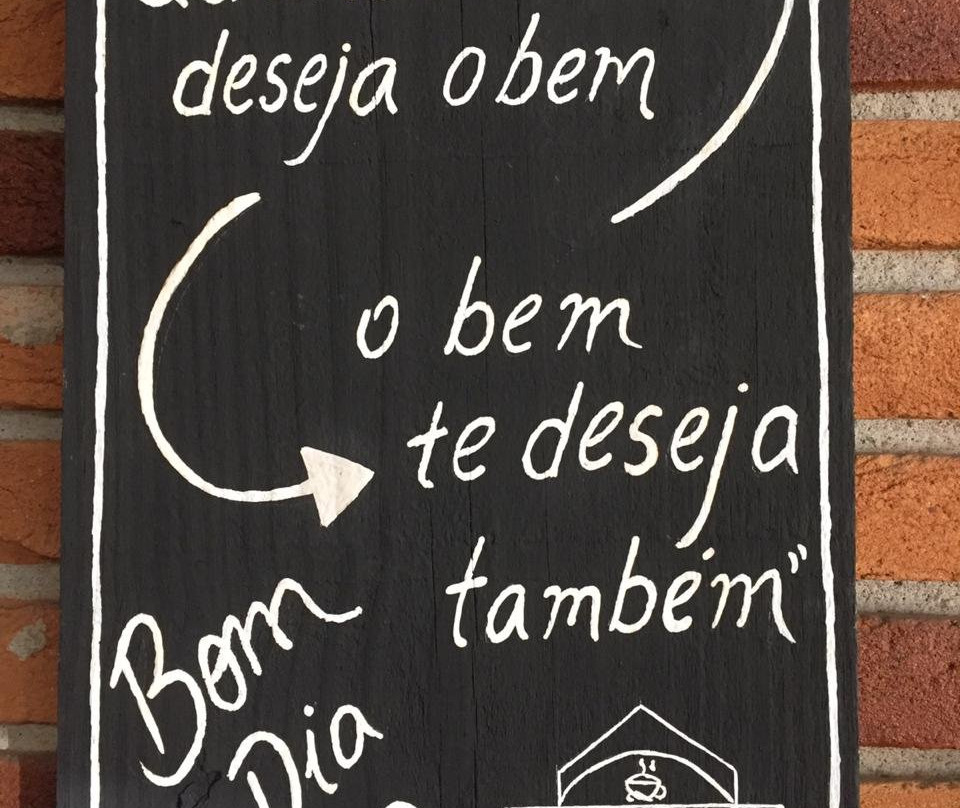 deseja o bem
o bem
te deseja
também"
Bom
Dia